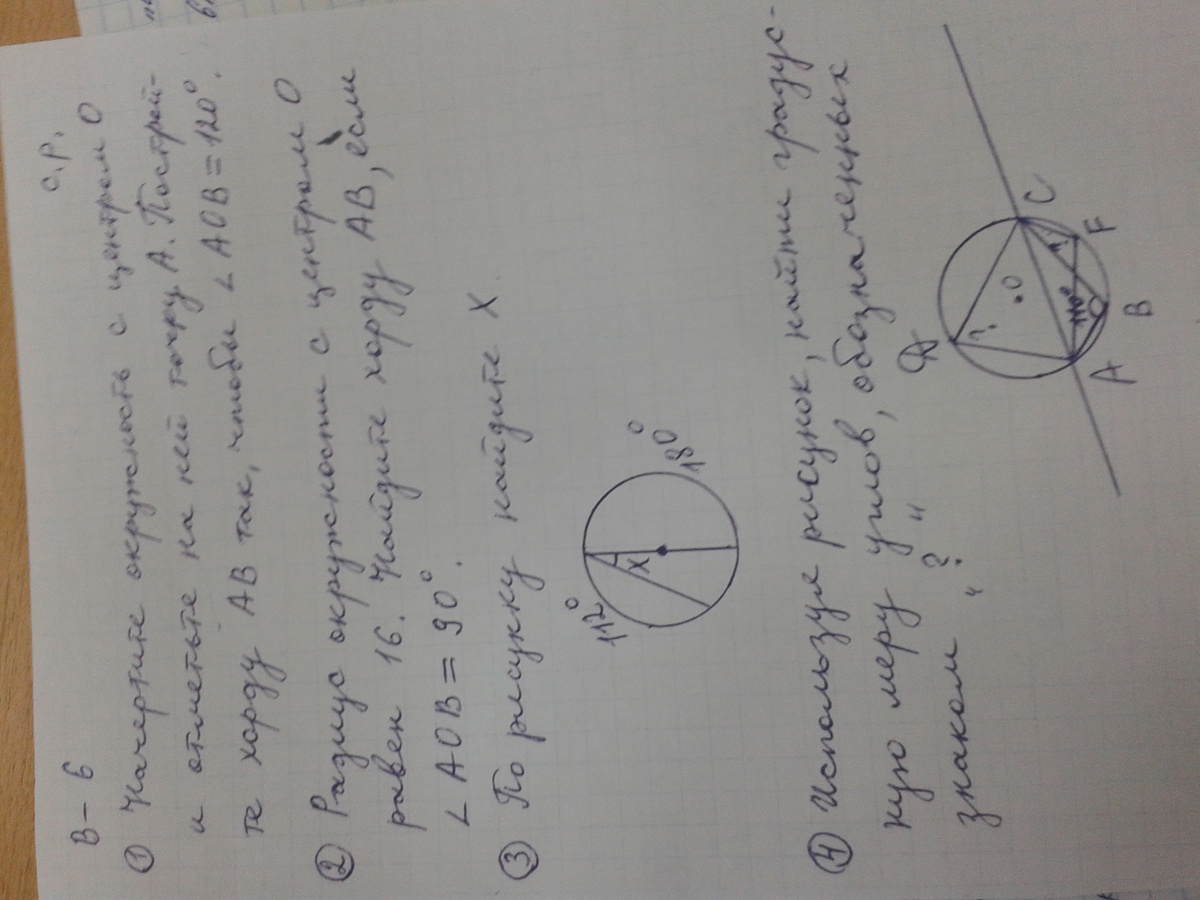 В – 6
С.Р.
① Начертите окружность с центром О
и отметьте на ней точку А. Построй-
те хорду АВ так, чтобы ∠АОВ = 120°.
② Радиус окружности с центром О
равен 16. Найдите хорду АВ, если
∠АОВ = 90°.
③ По рисунку найдите Х
112°
Х
180°
④ Используя рисунок, найти градус-
ную меру углов, обозначенных
знаком "?"
D
?
O
C
110°
?
F
A
B